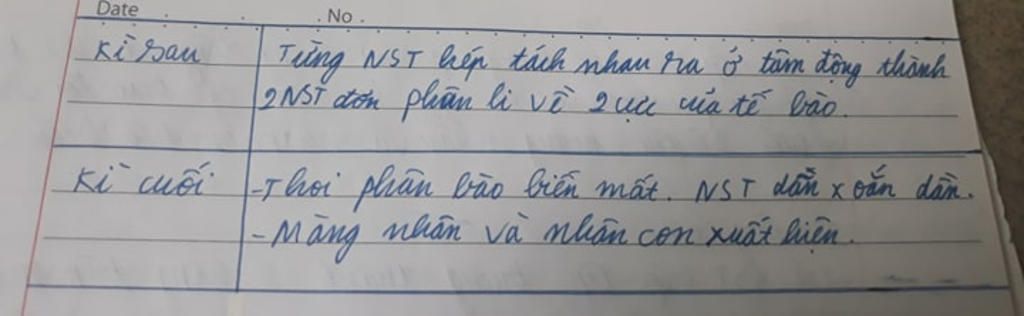 Date No.
Kì sau Từng NST kép tách nhau ra ở tâm động thành
2NST đơn phân li về 2 cực của tế bào.
Kì cuối -Thoi phân bào biến mất. NST dần xoắn dần.
- Màng nhân và nhân con xuất hiện.